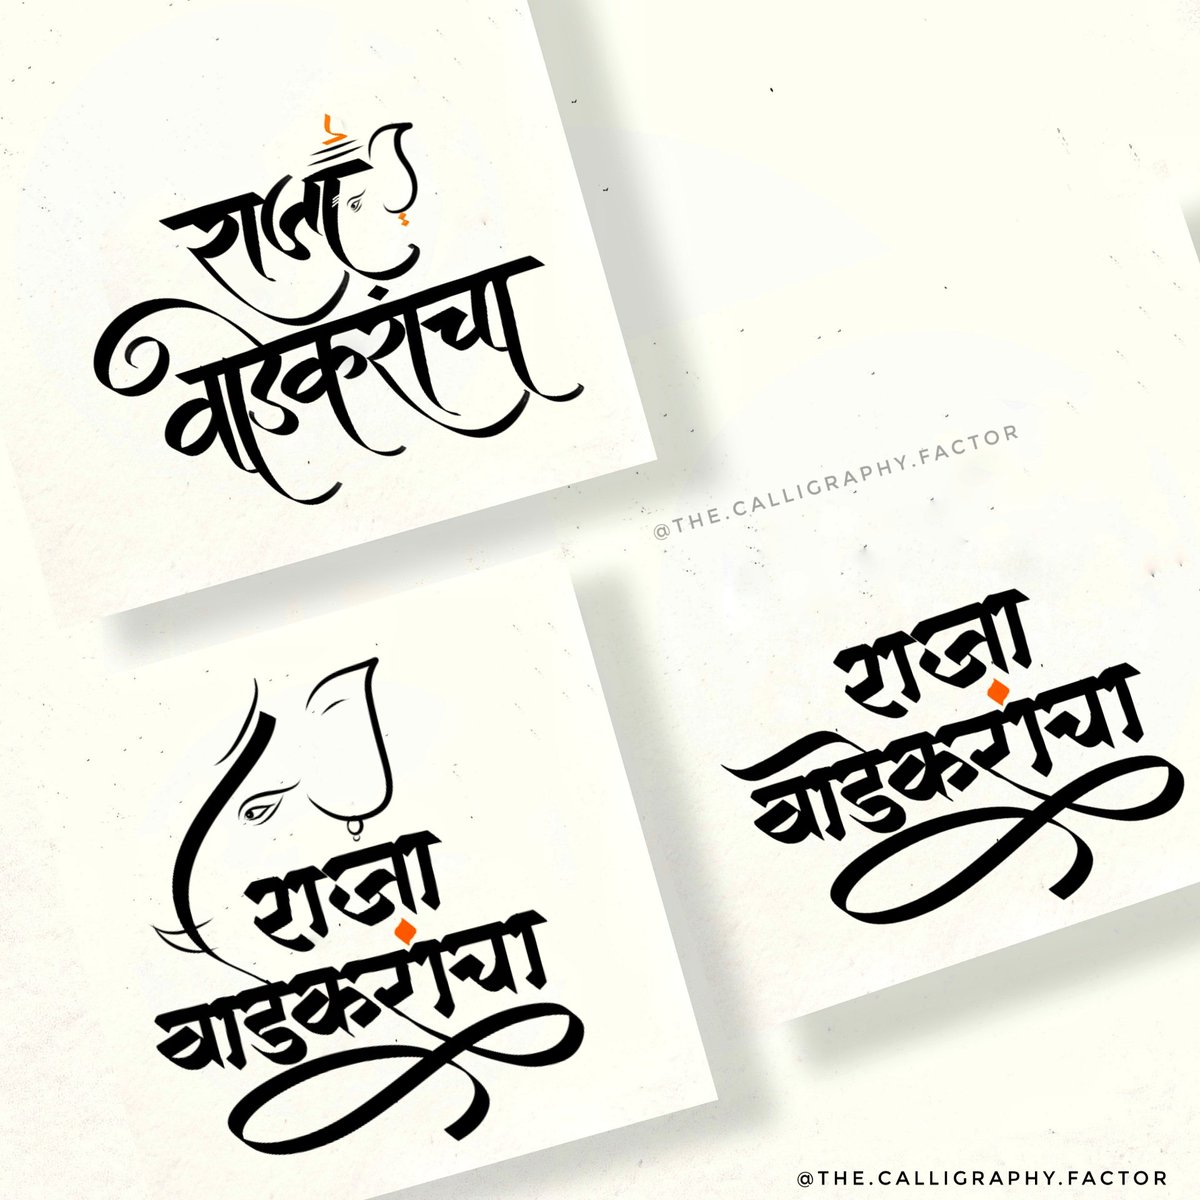 राजा
वाडेकरांचा
@THE.CALLIGRAPHY.FACTOR
राजा
वाडकरांचा
राजा
वाडकरांचा
@THE.CALLIGRAPHY.FACTOR